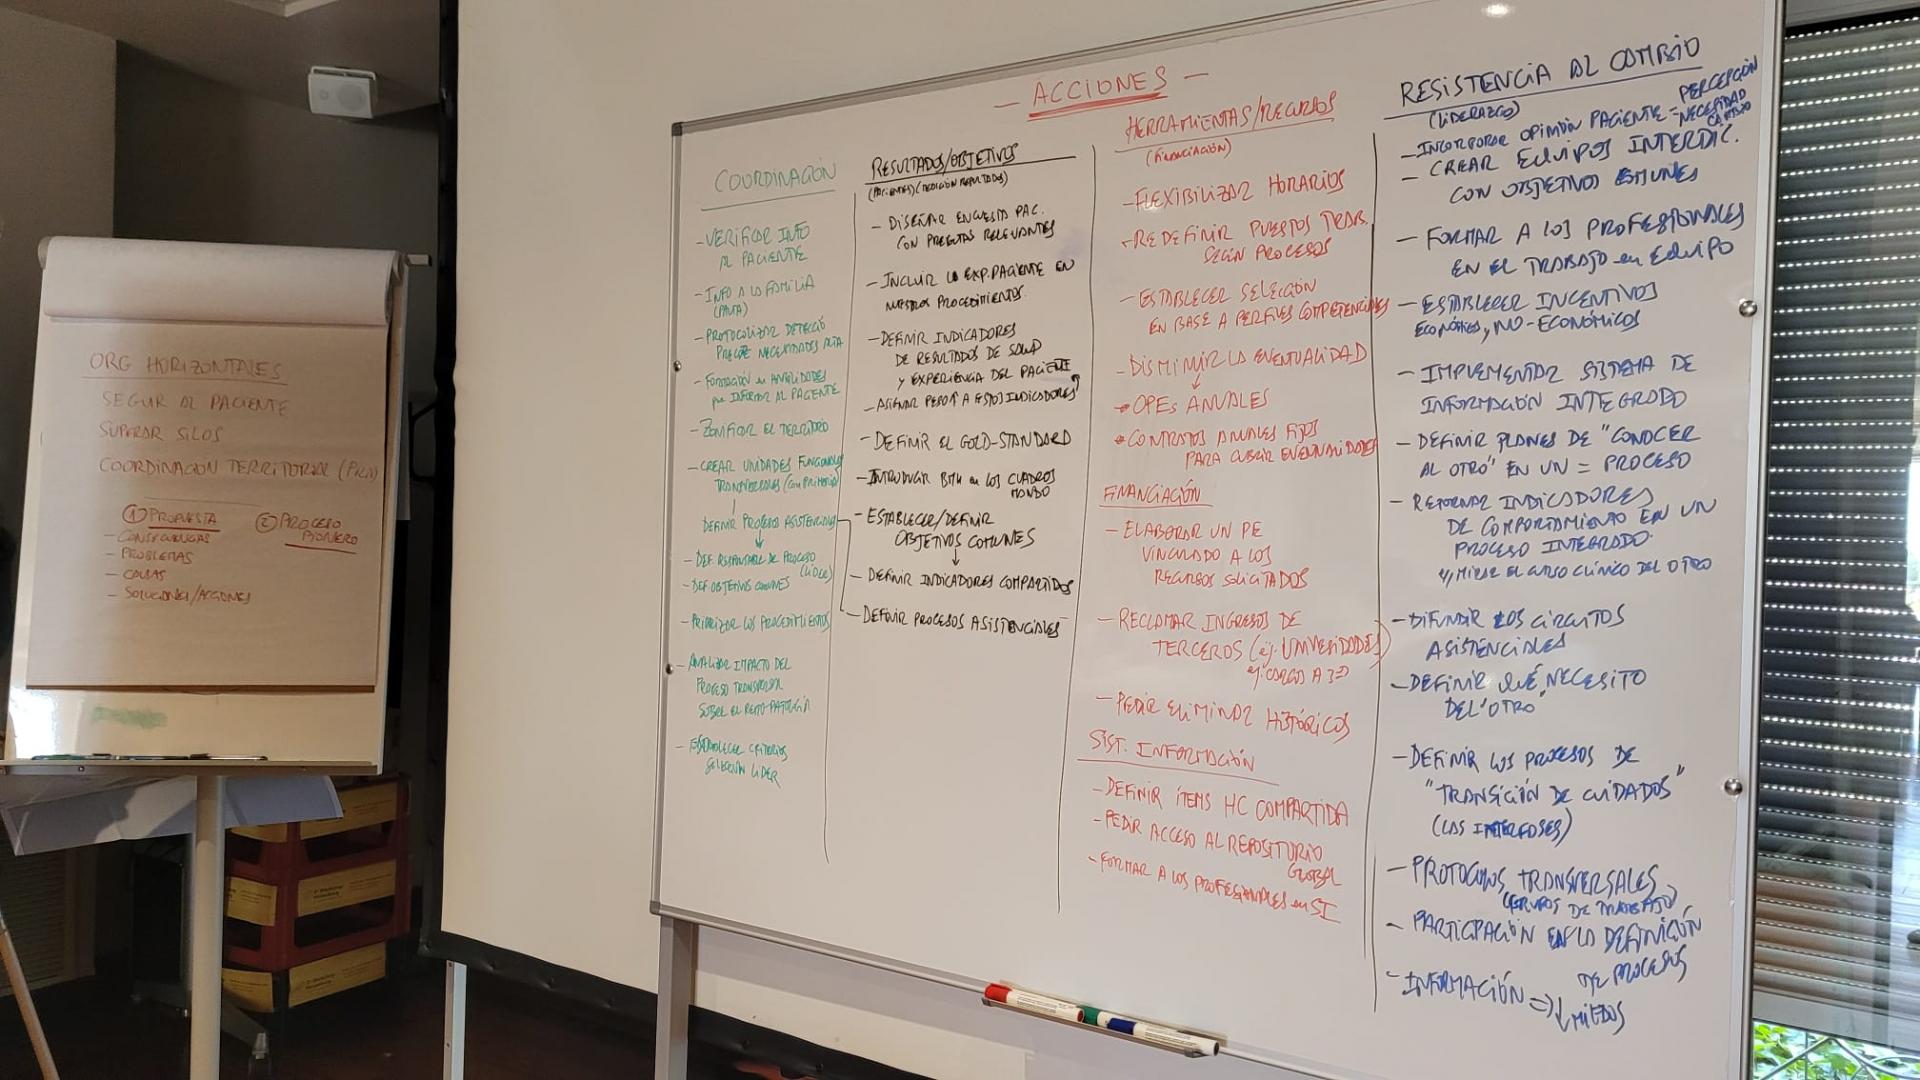 ORG HORIZONTALES
SEGUIR AL PACIENTE
SUPERAR SILOS
COORDINACIÓN TERRITORIAL
① PROPUESTA
② PROCESO
PIONERO
- CONSECUENCIAS
- PROBLEMAS
- CAUSAS
- SOLUCIONES/ACCIONES
— ACCIONES —
COORDINACIÓN
- VERIFICAR INFO
AL PACIENTE
- INFO A LA FAMILIA
(PAUTA)
- PROTOCOLIZAR DETECCIÓ
PRECOZ NECESIDADES ALTA
- FORMACIÓN en HABILIDADES
INFORMAR AL PACIENTE
- ZONIFICAR EL TERRITORIO
- CREAR UNIDADES FUNCIONALES
TRANSVERSALES (con PRIMARIA)
DEFINIR PROCESOS ASISTENCIALES
- DEF. RESPONSABLE DE PROCESO
(LÍDER)
- DEF OBJETIVOS COMUNES
- PRIORIZAR LOS PROCEDIMIENTOS
- ANALIZAR IMPACTO DEL
PROCESO TRANSVERSAL
SOBRE EL RESTO PATOLOGÍA
- ESTABLECER CRITERIOS
SELECCIÓN LÍDER
RESULTADOS/OBJETIVOS
(PACIENTES) (MEDICIÓN RESULTADOS)
- DISEÑAR ENCUESTA PAC.
CON PREGUTAS RELEVANTES
- INCLUIR LA EXP. PACIENTE EN
NUESTROS PROCEDIMIENTOS.
- DEFINIR INDICADORES
DE RESULTADOS DE SALUD
Y EXPERIENCIA DEL PACIENTE
- ASIGNAR PESO A ESTOS INDICADORES
- DEFINIR EL GOLD-STANDARD
- INTRODUCIR en LOS CUADROS
MANDO
- ESTABLECER/DEFINIR
OBJETIVOS COMUNES
- DEFINIR INDICADORES COMPARTIDOS
- DEFINIR PROCESOS ASISTENCIALES
HERRAMIENTAS/RECURSOS
(FINANCIACIÓN)
- FLEXIBILIZAR HORARIOS
- REDEFINIR PUESTOS TRAB.
SEGÚN PROCESOS
- ESTABLECER SELECCIÓN
EN BASE A PERFILES COMPETENCIALES
- DISMINUIR LA EVENTUALIDAD
OPEs ANUALES
CONTRATOS ANUALES FIJOS
PARA CUBRIR EVENTUALIDADES
FINANCIACIÓN
- ELABORAR UN PE
VINCULADO A LOS
RECURSOS SOLICITADOS
- RECLAMAR INGRESOS DE
TERCEROS (ej. UNIVERSIDADES)
ej. CARGO A 3os
- PEDIR ELIMINAR HISTÓRICOS
SIST. INFORMACIÓN
- DEFINIR ÍTEMS HC COMPARTIDA
- PEDIR ACCESO AL REPOSITORIO
GLOBAL
- FORMAR A LOS PROFESIONALES en SI
RESISTENCIA AL CAMBIO
(LIDERAZGO)
- INCORPORAR OPINIÓN PACIENTE = PERCEPCIÓN
NECESIDAD
CAMBIO
- CREAR EQUIPOS INTERDIC.
CON OBJETIVOS COMUNES
- FORMAR A LOS PROFESIONALES
EN EL TRABAJO en EQUIPO
- ESTABLECER INCENTIVOS
ECONÓMICOS, NO-ECONÓMICOS
- IMPLEMENTAR SISTEMA DE
INFORMACIÓN INTEGRADO
- DEFINIR PLANES DE "CONOCER
AL OTRO" EN UN = PROCESO
- RETORNAR INDICADORES
DE COMPORTAMIENTO EN UN
PROCESO INTEGRADO.
MIRAR EL CURSO CLÍNICO DEL OTRO
- DIFUNDIR LOS CIRCUITOS
ASISTENCIALES
- DEFINIR QUÉ NECESITO
DEL "OTRO"
- DEFINIR LOS PROCESOS DE
"TRANSICIÓN DE CUIDADOS"
(LAS INTERFASES)
- PROTOCOLOS TRANSVERSALES
(GRUPOS DE TRABAJO)
- PARTICIPACIÓN EN LA DEFINICIÓN
DE PROCESOS
- INFORMACIÓN => ↓ MIEDOS